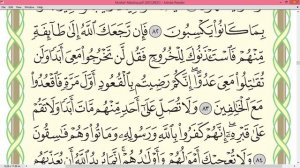 بِمَا كَانُوا يَكْسِبُونَ ٨٢ فَإِن رَّجَعَكَ اللَّهُ إِلَىٰ طَائِفَةٍ
مِّنْهُمْ فَاسْتَأْذَنُوكَ لِلْخُرُوجِ فَقُل لَّن تَخْرُجُوا مَعِيَ أَبَدًا وَلَن
تُقَاتِلُوا مَعِيَ عَدُوًّا إِنَّكُمْ رَضِيتُم بِالْقُعُودِ أَوَّلَ مَرَّةٍ فَاقْعُدُوا
مَعَ الْخَالِفِينَ ٨٣ وَلَا تُصَلِّ عَلَىٰ أَحَدٍ مِّنْهُم مَّاتَ أَبَدًا وَلَا تَقُمْ
عَلَىٰ قَبْرِهِ إِنَّهُمْ كَفَرُوا بِاللَّهِ وَرَسُولِهِ وَمَاتُوا وَهُمْ فَاسِقُونَ
٨٤ وَلَا تُعْجِبْكَ أَمْوَالُهُمْ وَأَوْلَادُهُمْ إِنَّمَا يُرِيدُ اللَّهُ أَن